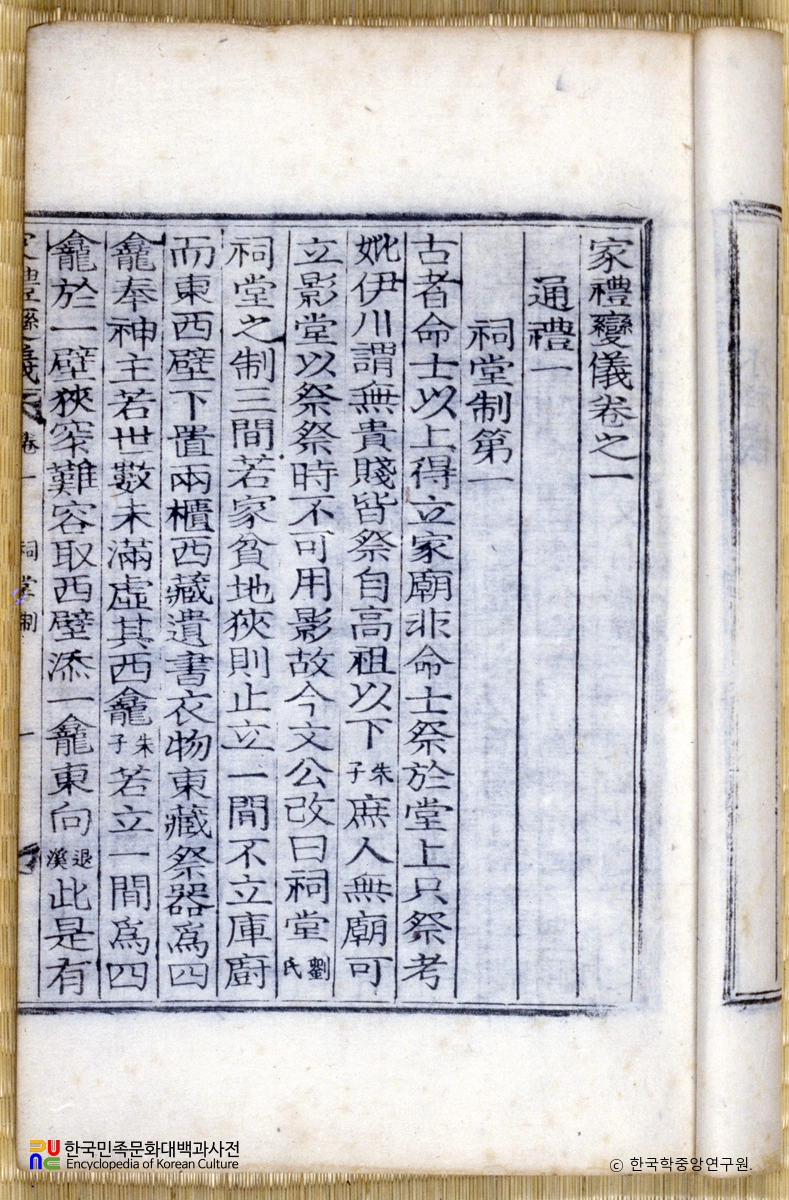 家禮變儀卷之一
通禮一
祠堂制第一
古者命士以上得立家廟非命士祭於堂上只祭考
妣伊川謂無貴賤皆祭自高祖以下朱子庶人無廟可
立影堂以祭祭時不可用影故今文公改曰祠堂劉氏
祠堂之制三間若家貧地狹則止立一間不立庫廚
而東西壁下置兩櫃西藏遺書衣物東藏祭器爲四
龕奉神主若世數未滿虛其西龕朱子若立一間爲四
龕於一壁狹窄難容取西壁添一龕東向退溪此是有
卷一 祠堂制 一
한국민족문화대백과사전
Encyclopedia of Korean Culture
© 한국학중앙연구원.